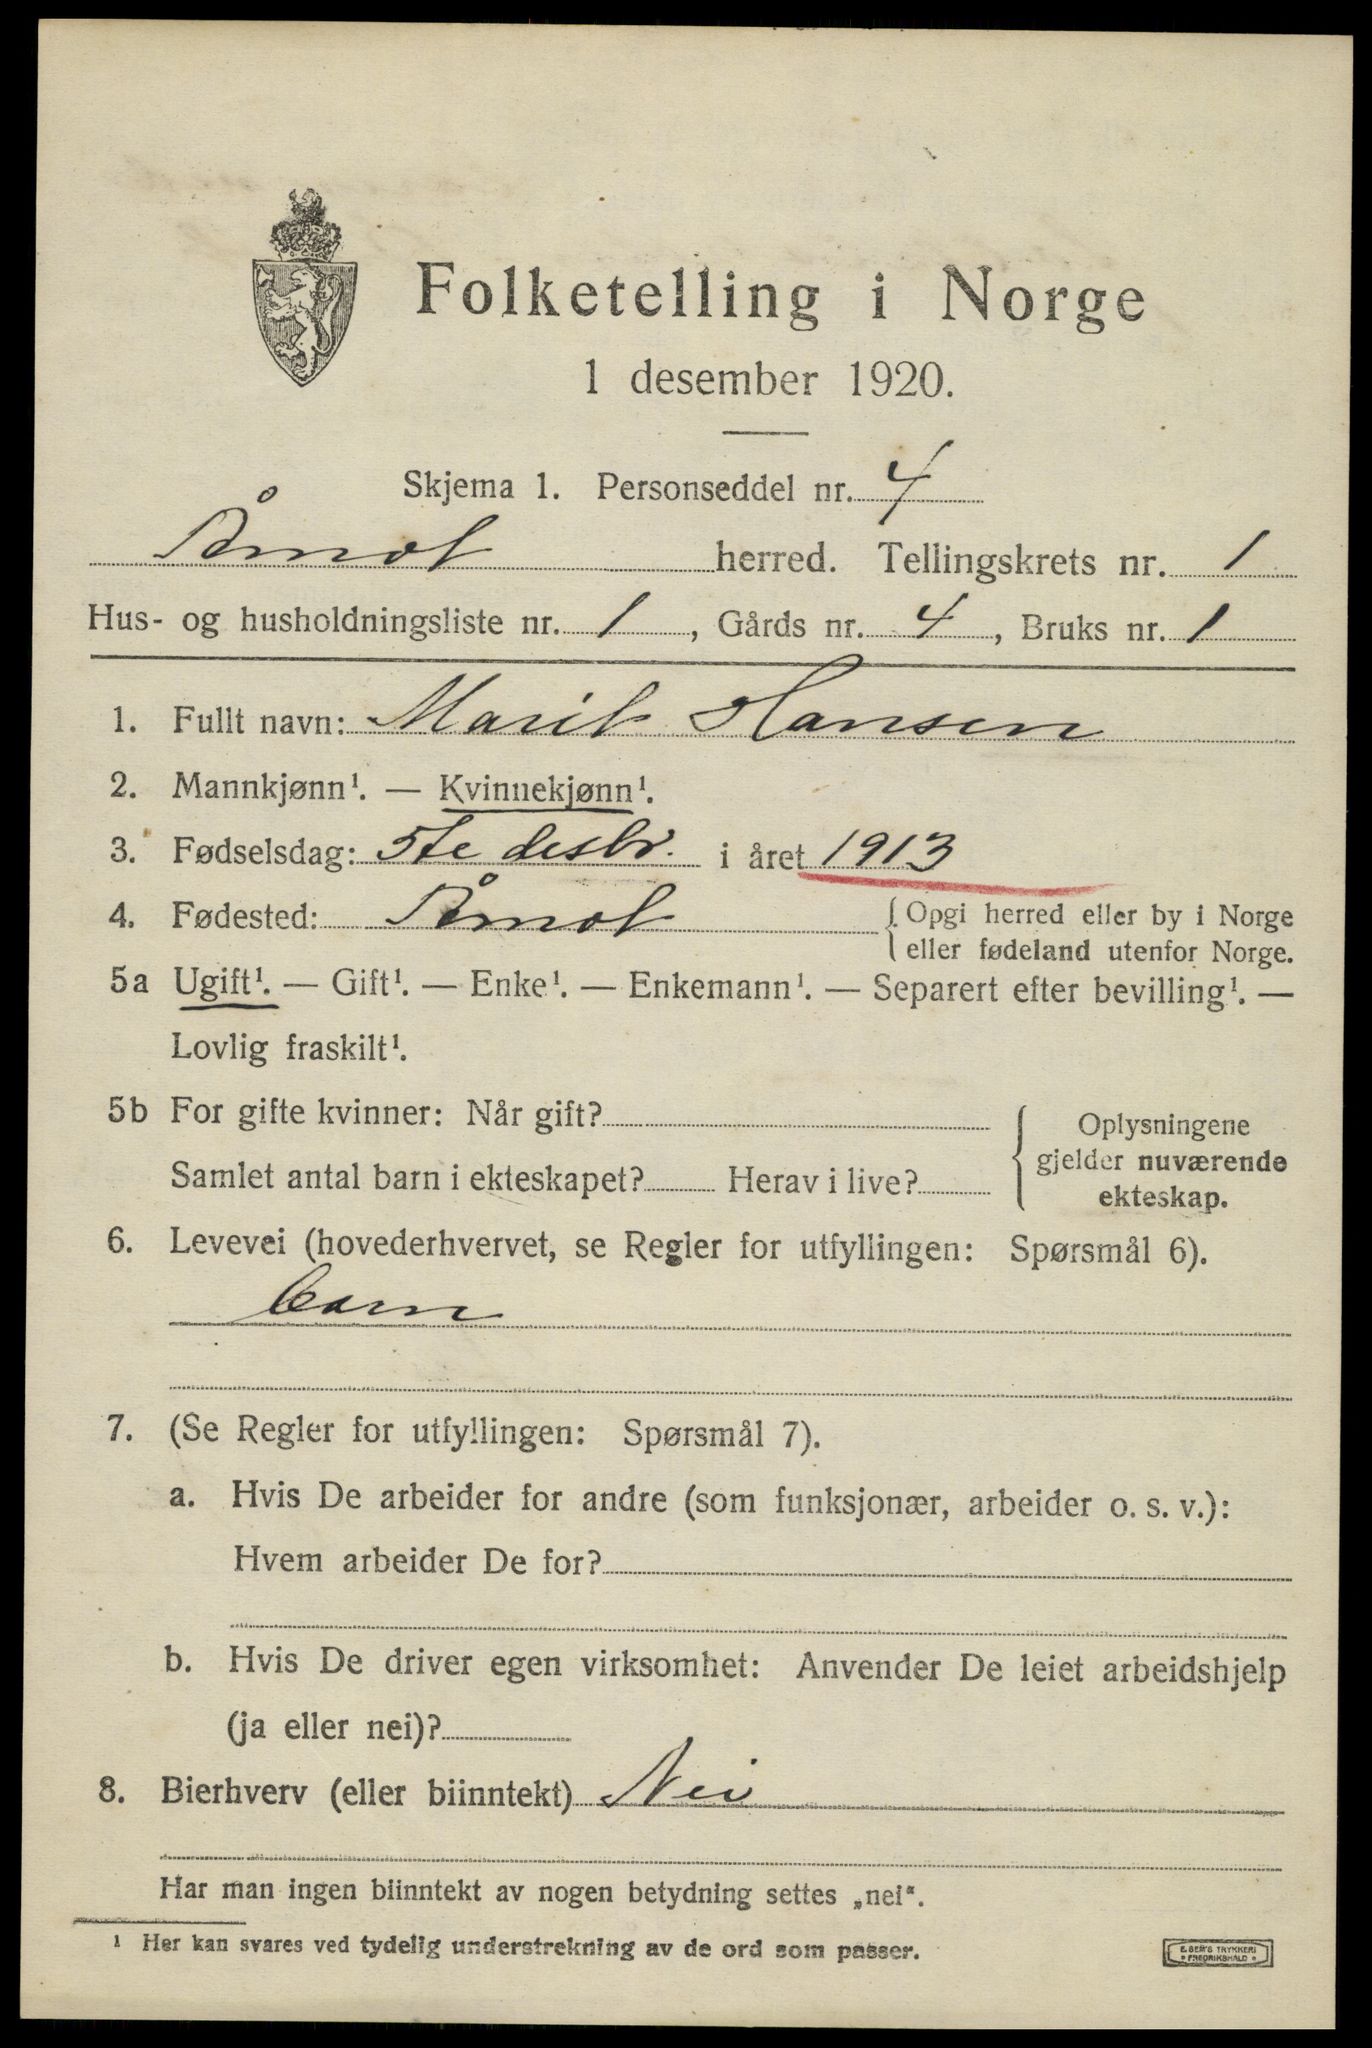 Folketelling i Norge
1 desember 1920.
Skjema 1. Personseddel nr. 4
Åmot herred. Tellingskrets nr. 1
Hus- og husholdningsliste nr. 1, Gårds nr. 4, Bruks nr. 1
1. Fullt navn: Marit Hansen
2. Mannkjønn¹. — Kvinnekjønn¹.
3. Fødselsdag: 5te desbr. i året 1913
4. Fødested: Åmot {Opgi herred eller by i Norge
eller fødeland utenfor Norge.
5a Ugift¹. — Gift¹. — Enke¹. — Enkemann¹. — Separert efter bevilling¹. —
Lovlig fraskilt¹.
5b For gifte kvinner: Når gift?
Samlet antal barn i ekteskapet? Herav i live?
Oplysningene
gjelder nuværende
ekteskap.
6. Levevei (hovederhvervet, se Regler for utfyllingen: Spørsmål 6).
barn
7. (Se Regler for utfyllingen: Spørsmål 7).
a. Hvis De arbeider for andre (som funksjonær, arbeider o. s. v.):
Hvem arbeider De for?
b. Hvis De driver egen virksomhet: Anvender De leiet arbeidshjelp
(ja eller nei)?
8. Bierhverv (eller biinntekt) Nei
Har man ingen biinntekt av nogen betydning settes „nei“.
¹ Her kan svares ved tydelig understrekning av de ord som passer.
E. SEM'S TRYKKERI
• FREDRIKSHALD •